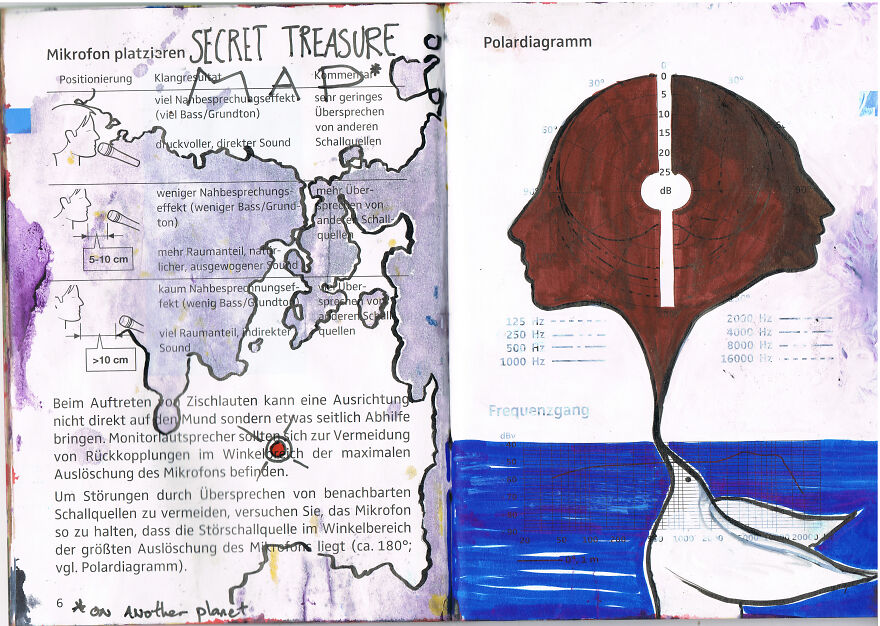 Mikrofon platzieren SECRET TREASURE
MAP*
Positionierung Klangresultat Kommentar
viel Nahbesprechungseffekt
(viel Bass/Grundton)
druckvoller, direkter Sound
sehr geringes
Übersprechen
von anderen
Schallquellen
weniger Nahbesprechungs-
effekt (weniger Bass/Grund-
ton)
mehr Raumanteil, natür-
licher, ausgewogener Sound
mehr Über-
sprechen von
anderen Schall-
quellen
5-10 cm
kaum Nahbesprechnungsef-
fekt (wenig Bass/Gundton)
viel Raumanteil, indirekter
Sound
viel Über-
sprechen von
anderen Schall-
quellen
>10 cm
Beim Auftreten von Zischlauten kann eine Ausrichtung
nicht direkt auf den Mund sondern etwas seitlich Abhilfe
bringen. Monitorlautsprecher sollten sich zur Vermeidung
von Rückkopplungen im Winkelbereich der maximalen
Auslöschung des Mikrofons befinden.
Um Störungen durch Übersprechen von benachbarten
Schallquellen zu vermeiden, versuchen Sie, das Mikrofon
so zu halten, dass die Störschallquelle im Winkelbereich
der größten Auslöschung des Mikrofons liegt (ca. 180°;
vgl. Polardiagramm).
6 *on another planet
Polardiagramm
0
30° 0 30°
5
10
60°
15
20
25
90° dB 90°
125 Hz
250 Hz
500 Hz
1000 Hz
2000 Hz
4000 Hz
8000 Hz
16000 Hz
Frequenzgang
dBV
20 50 100 200 500 1000 2000 5000 10000 20000